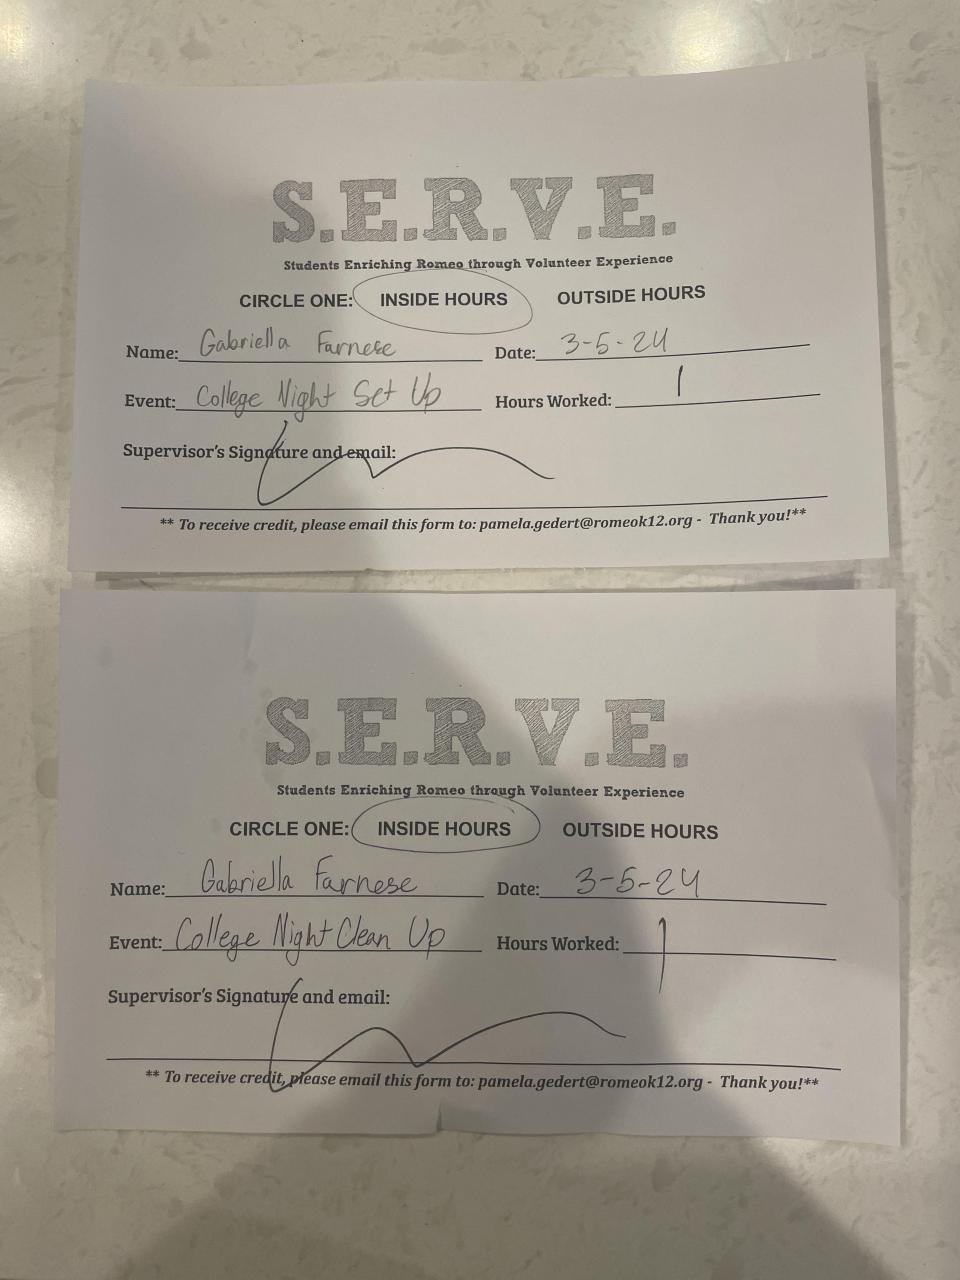 S.E.R.V.E.
Students Enriching Romeo through Volunteer Experience
CIRCLE ONE: INSIDE HOURS OUTSIDE HOURS
Name: Gabriella Farnese Date: 3-5-24
Event: College Night Set Up Hours Worked: 1
Supervisor's Signature and email:
** To receive credit, please email this form to: pamela.gedert@romeok12.org - Thank you!**
S.E.R.V.E.
Students Enriching Romeo through Volunteer Experience
CIRCLE ONE: INSIDE HOURS OUTSIDE HOURS
Name: Gabriella Farnese Date: 3-5-24
Event: College Night Clean Up Hours Worked: 1
Supervisor's Signature and email:
** To receive credit, please email this form to: pamela.gedert@romeok12.org - Thank you!**